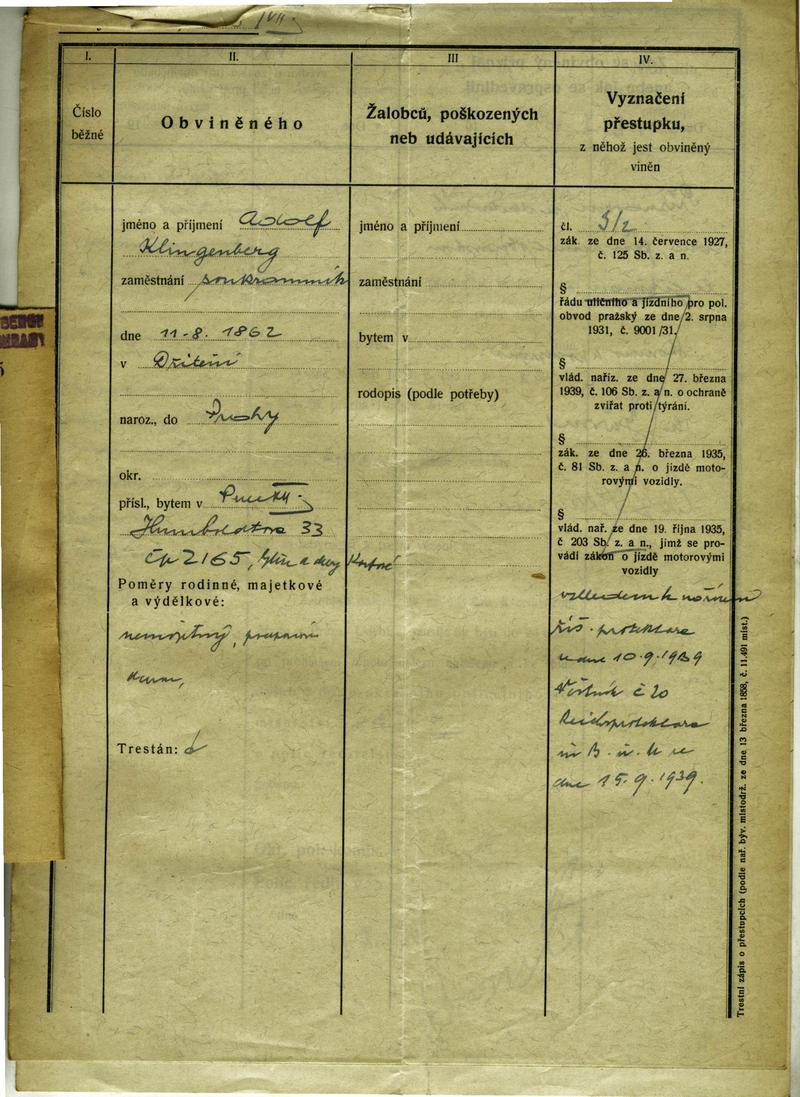 I.
II.
III
IV.
Číslo
běžné
Obviněného
Žalobců, poškozených
neb udávajících
Vyznačení
přestupku,
z něhož jest obviněný
viněn
jméno a příjmení Adolf
Klingenberg
zaměstnání soukromník
dne 11. 8. 1862
v
naroz., do Prahy
okr.
přísl., bytem v
Humboldtova 33
čp 2165,
Poměry rodinné, majetkové
a výdělkové:
nemajetný,
Trestán:
jméno a příjmení
zaměstnání
bytem v
rodopis (podle potřeby)
čl. 3/2
zák. ze dne 14. července 1927,
č. 125 Sb. z. a n.
§
řádu uličního a jízdního pro pol.
obvod pražský ze dne 2. srpna
1931, č. 9001/31.
§
vlád. naříz. ze dne 27. března
1939, č. 106 Sb. z. a n. o ochraně
zvířat proti týrání.
§
zák. ze dne 26. března 1935,
č. 81 Sb. z. a n. o jízdě moto-
rovými vozidly.
§
vlád. nař. ze dne 19. října 1935,
č 203 Sb. z. a n., jímž se pro-
vádí zákon o jízdě motorovými
vozidly
vzhledem k nařízení
říš. protektora
ze dne 10. 9. 1939
Věstník č 20
Reichsprotektora
in B. u. M ze
dne 15. 9. 1939.
Trestní zápis o přestupcích (podle nař. býv. místodrž. ze dne 13 března 1858, č. 11.491 míst.)